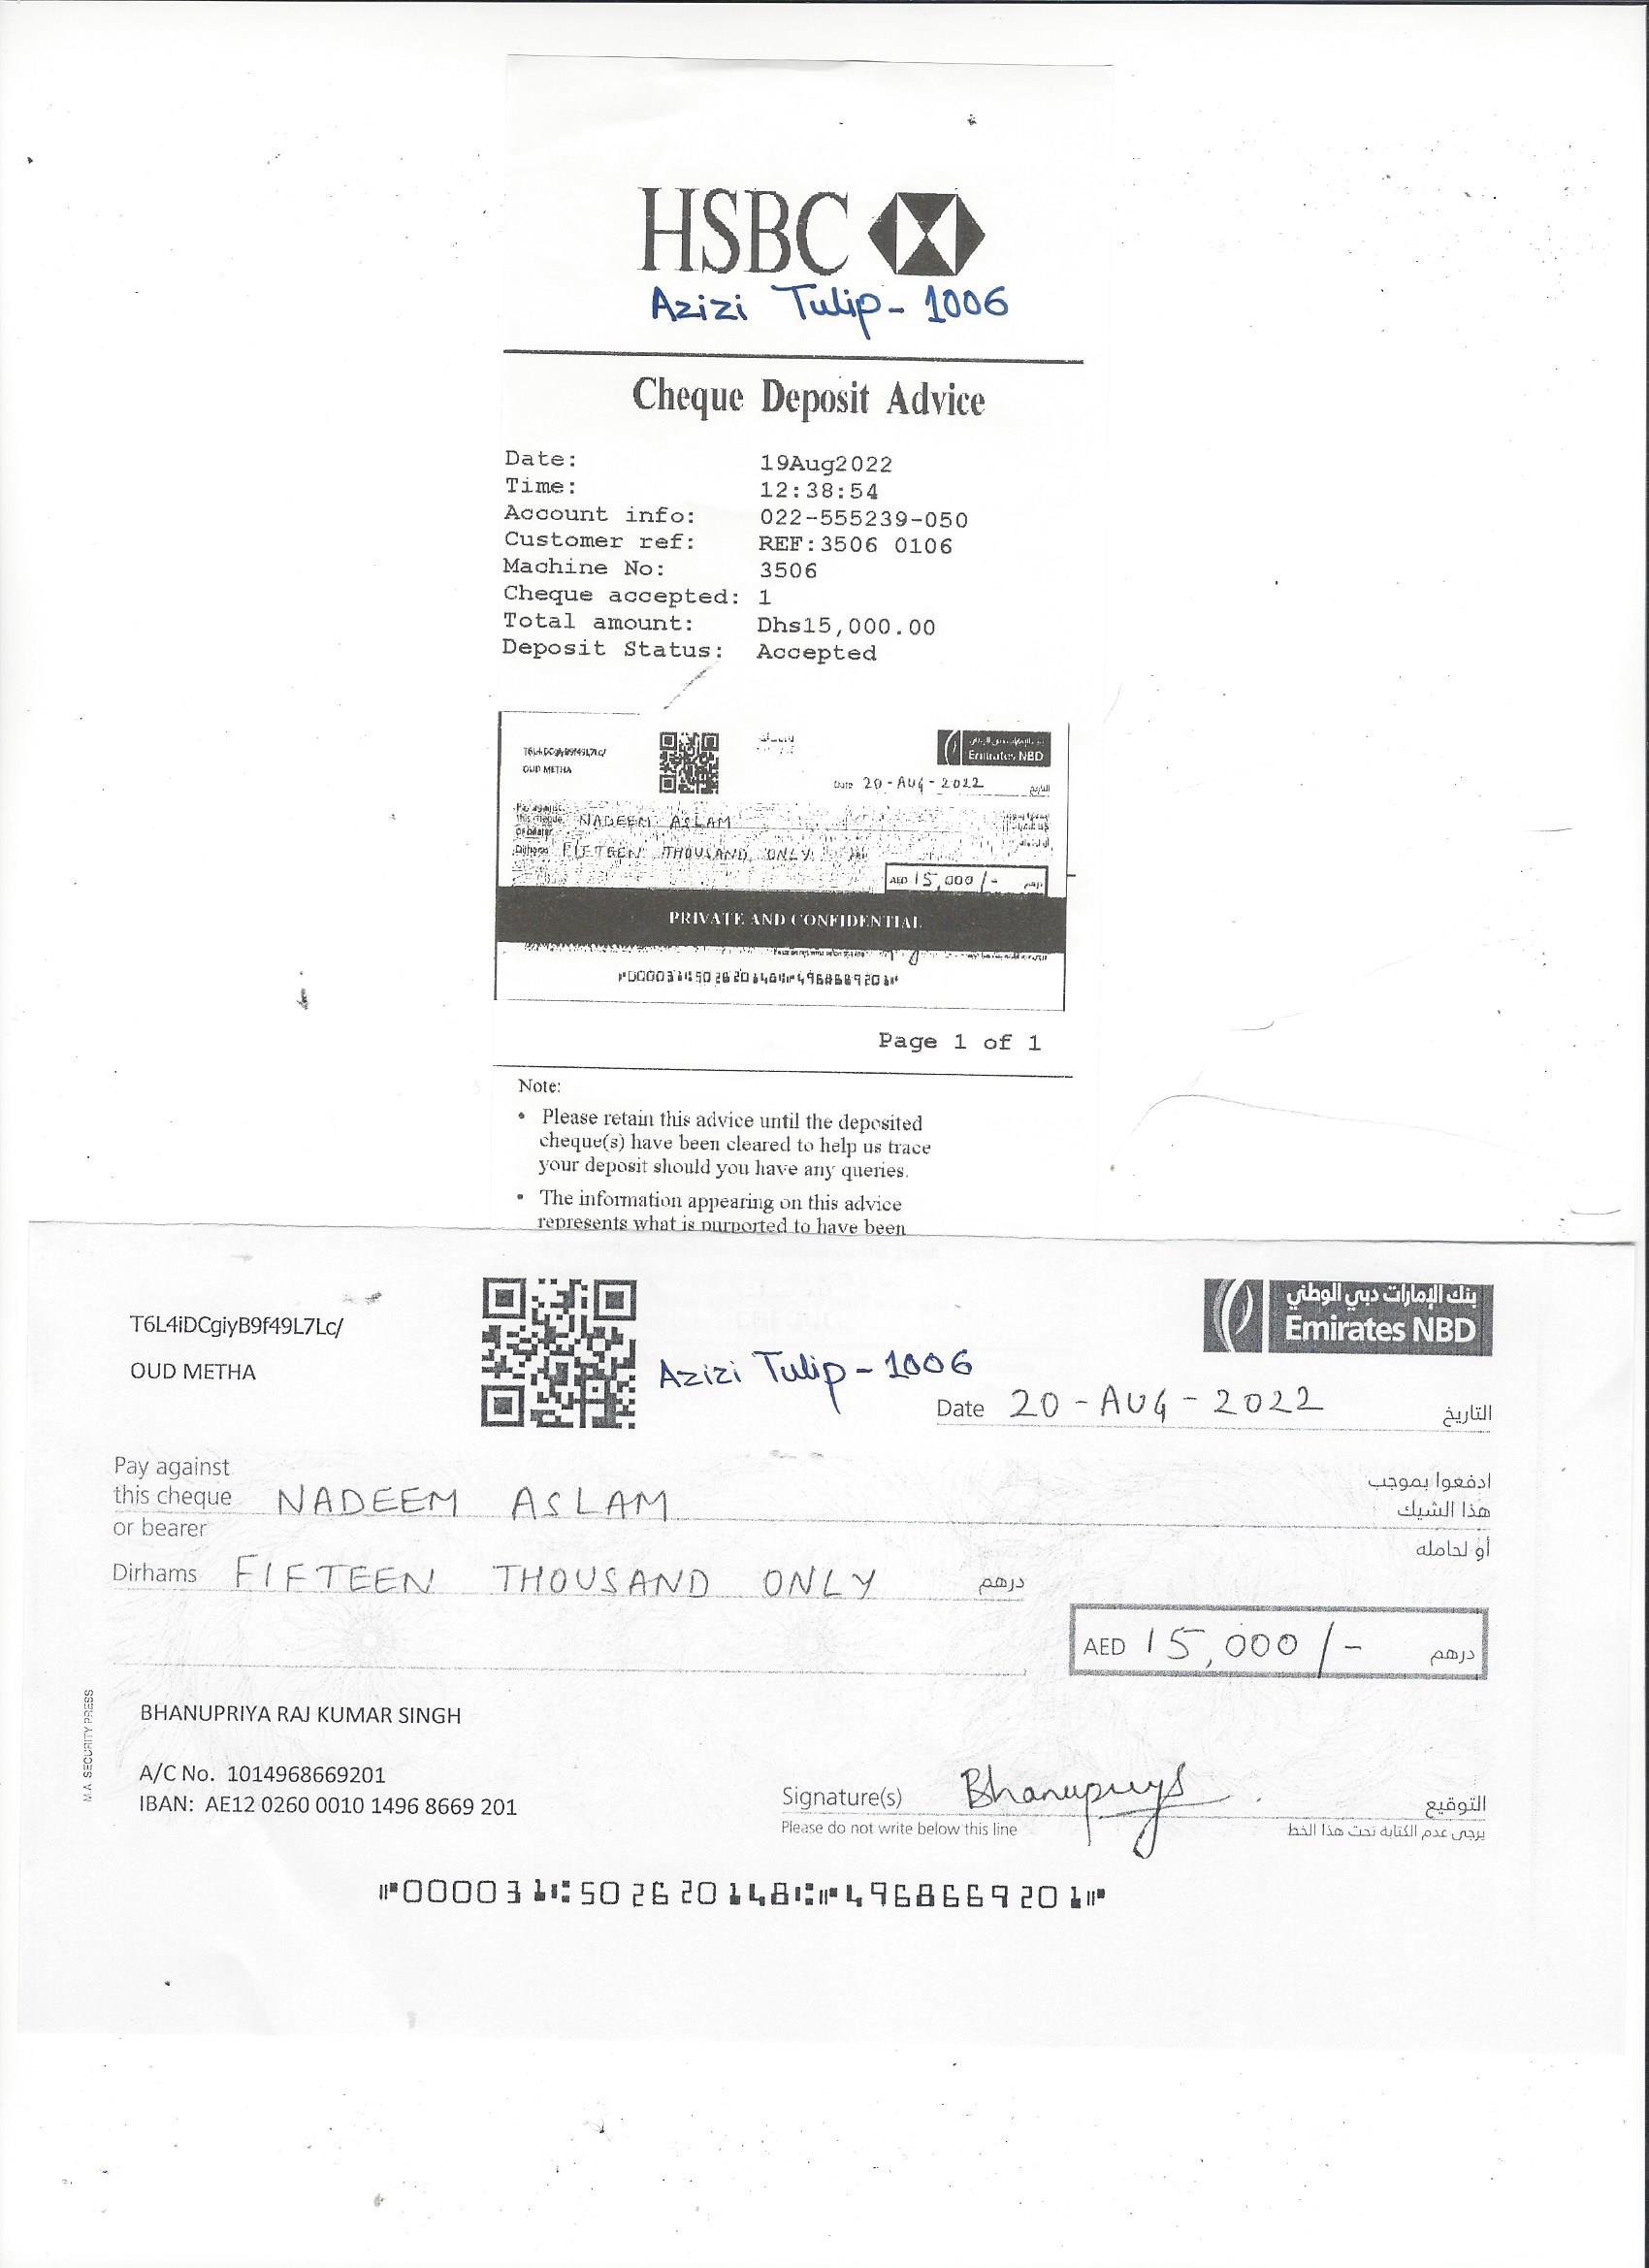 HSBC
Azizi Tulip - 1006
Cheque Deposit Advice
Date: 19Aug2022
Time: 12:38:54
Account info: 022-555239-050
Customer ref: REF:3506 0106
Machine No: 3506
Cheque accepted: 1
Total amount: Dhs15,000.00
Deposit Status: Accepted
T6L4iDCgiyB9f49L7Lc/
OUD METHA
Emirates NBD
Date 20-AUG-2022 التاريخ
Pay against
this cheque NADEEM ASLAM
or bearer
Dirhams FIFTEEN THOUSAND ONLY
AED 15,000/- درهم
PRIVATE AND CONFIDENTIAL
⑈000031⑆502620148⑆⑈4968669201⑈
Page 1 of 1
Note:
• Please retain this advice until the deposited
cheque(s) have been cleared to help us trace
your deposit should you have any queries.
• The information appearing on this advice
represents what is purported to have been
T6L4iDCgiyB9f49L7Lc/
OUD METHA
Azizi Tulip - 1006
بنك الإمارات دبي الوطني
Emirates NBD
Date 20-AUG-2022 التاريخ
Pay against ادفعوا بموجب
this cheque NADEEM ASLAM هذا الشيك
or bearer أو لحامله
Dirhams FIFTEEN THOUSAND ONLY درهم
AED 15,000/- درهم
M.A. SECURITY PRESS
BHANUPRIYA RAJ KUMAR SINGH
A/C No. 1014968669201
IBAN: AE12 0260 0010 1496 8669 201
Signature(s) Bhanupriya التوقيع
Please do not write below this line يرجى عدم الكتابة تحت هذا الخط
⑈000031⑆502620148⑆⑈4968669201⑈